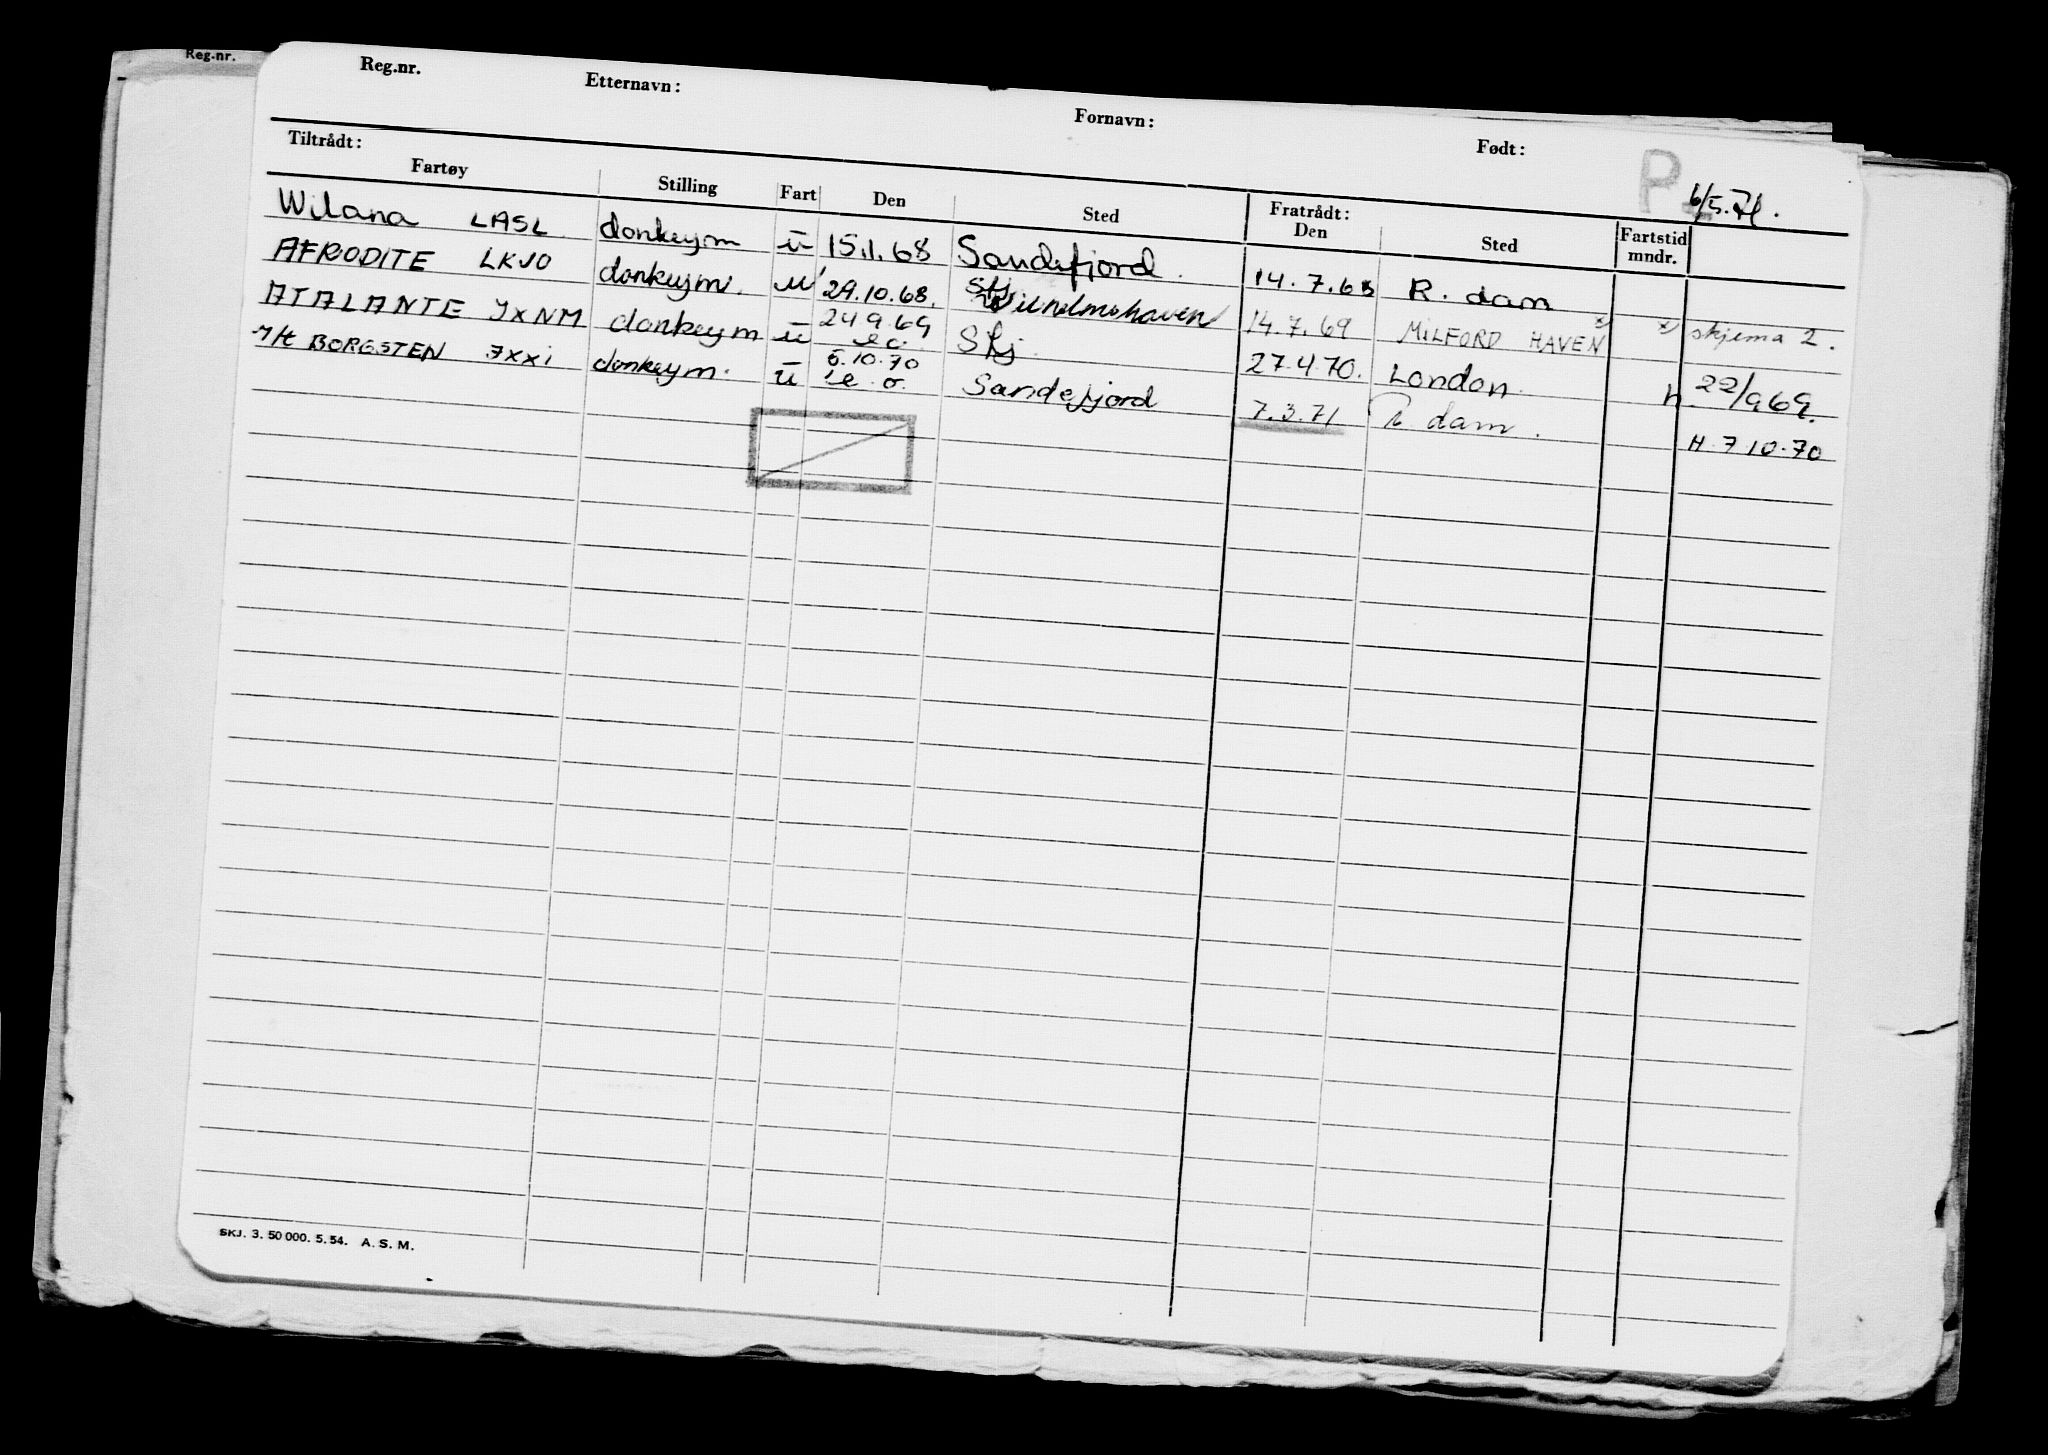 Reg.nr.
Reg.nr. Etternavn: Fornavn: Født:
P 6/5.71.
Tiltrådt: Fratrådt:
Fartøy Stilling Fart Den Sted Den Sted Fartstid mndr.
Wilana LASL donkeym u 15.1.68 Sandefjord. 14.7.68 R. dam
AFRODITE LKJO donkeym. u 29.10.68. Sfj Wilhelmshaven 14.7.69 MILFORD HAVEN x) x) skjema 2.
ATALANTE JXNM donkeym u 24.9.69 e.o. Sfj 27.4.70. London. h 22/9 69.
M/t BORGSTEN JXXI donkeym. u 5.10.70 e.o. Sandefjord 7.3.71 R dam. H. 7 10.70
SKJ. 3. 50 000. 5. 54. A. S. M.